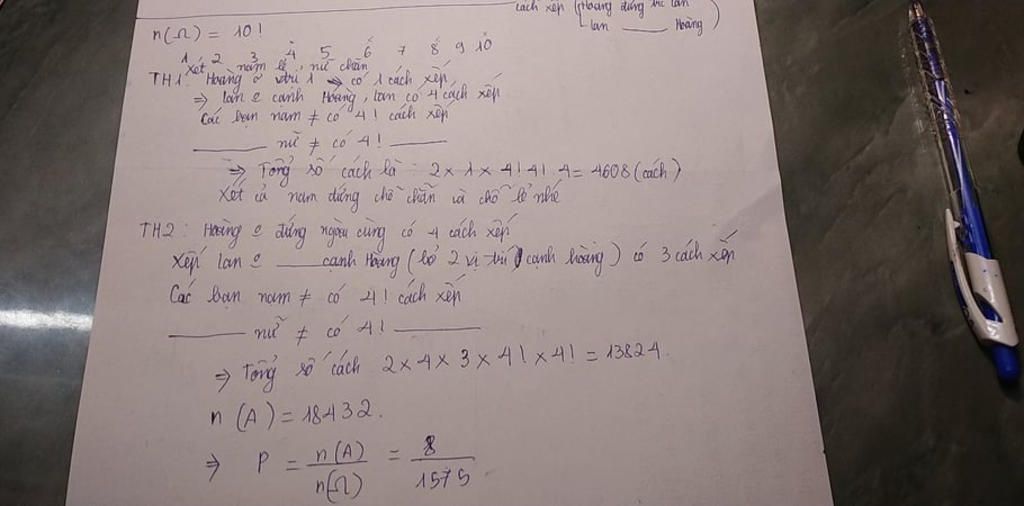 cách xếp (Hoàng đứng trc lan
lan ___ Hoàng)
n(Ω) = 10!
1 2 3 4 5 6 7 8 9 10
Xét nam lẻ, nữ chẵn
TH1: Hoàng ở vtrí 1 → có 1 cách xếp
⇒ lan ở cạnh Hoàng, lan có 4 cách xếp
Các bạn nam ≠ có 4! cách xếp
___ nữ ≠ có 4! ___
⇒ Tổng số cách là: 2 x 1 x 4! 4! 4 = 4608 (cách)
Xét cả nam đứng chỗ chẵn và chỗ lẻ nhé
TH2: Hoàng đứng ngoài cùng có 4 cách xếp
Xếp lan ___ cạnh Hoàng (bỏ 2 vị trí cạnh hoàng) có 3 cách xếp
Các bạn nam ≠ có 4! cách xếp
___ nữ ≠ có 4! ___
⇒ Tổng số cách 2 x 4 x 3 x 4! x 4! = 13824.
n(A) = 18432.
⇒ P = n(A)/n(Ω) = 8/1575